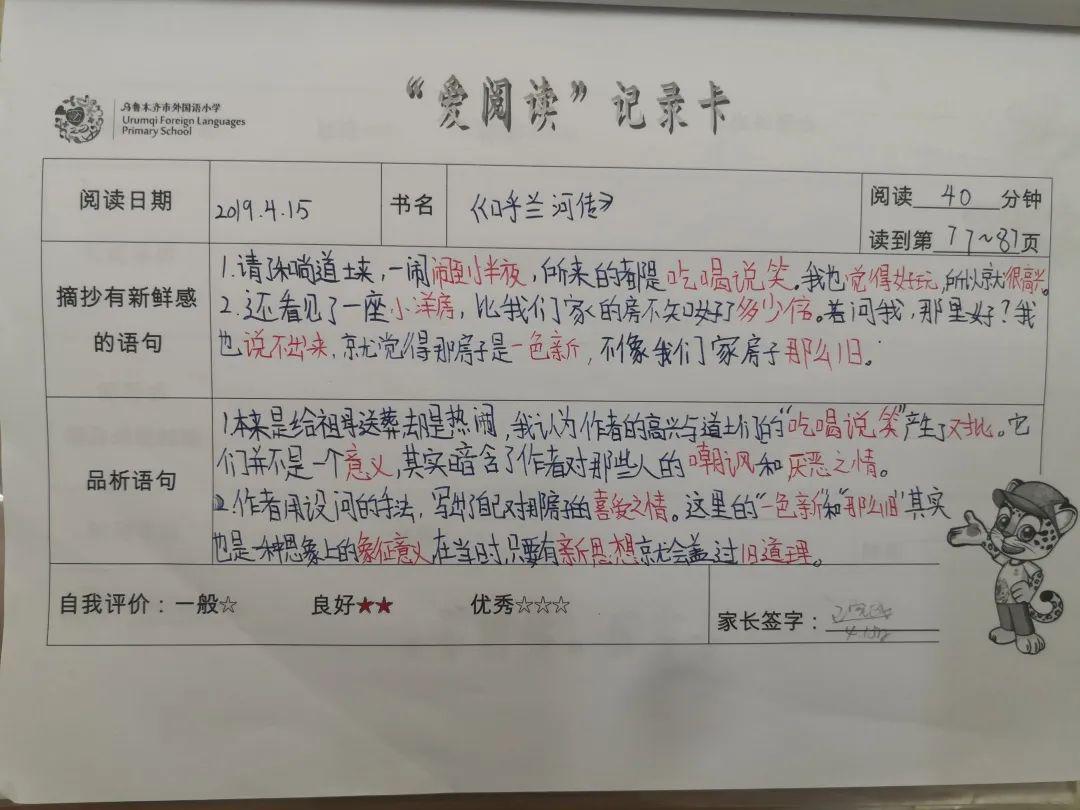 乌鲁木齐市外国语小学
Urumqi Foreign Languages
Primary School
“爱阅读”记录卡
阅读日期 2019.4.15 书名 《呼兰河传》 阅读 40 分钟
读到第 77~87 页
摘抄有新鲜感的语句
1.请了和尚道士来,一闹闹到小半夜,所来的都是吃喝说笑。我也觉得好玩,所以就很高兴。
2.还看见了一座小洋房,比我们家的房不知好了多少倍。若问我,那里好?我
也说不出来,就觉得那房子是一色新,不像我们家房子那么旧。
品析语句
1.本来是给祖母送葬却是热闹,我认为作者的高兴与道士们的“吃喝说笑”产生了对比。它
们并不是一个意义,其实暗含了作者对那些人的嘲讽和厌恶之情。
2.作者用设问的手法,写出了自己对那房子的喜爱之情。这里的“一色新”和“那么旧”其实
也是一种思象上的象征意义在当时,只要有新思想就会盖过旧道理。
自我评价:一般☆ 良好★★ 优秀☆☆☆ 家长签字: